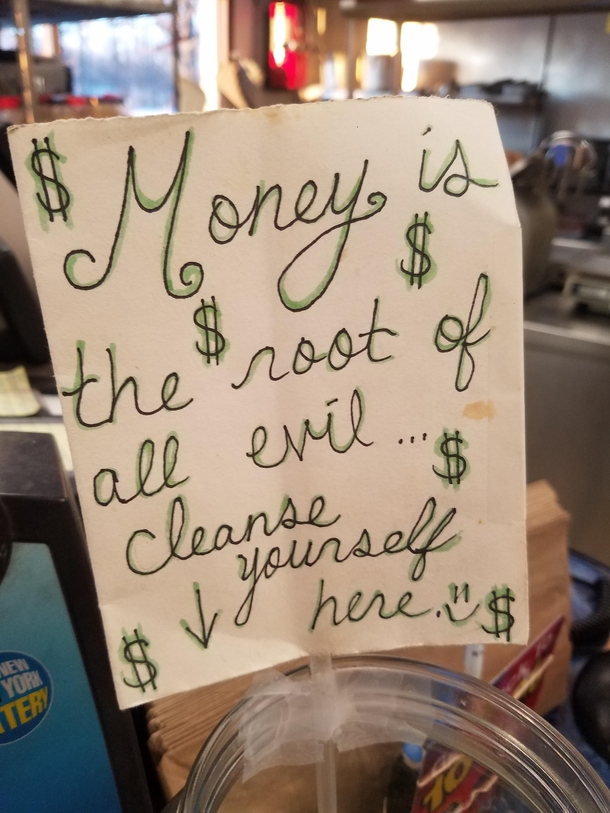 $ Money is
$
$
the root of
all evil... $
cleanse
yourself
↓ here. ü $
$
NEW
YORK
LOTTERY
10